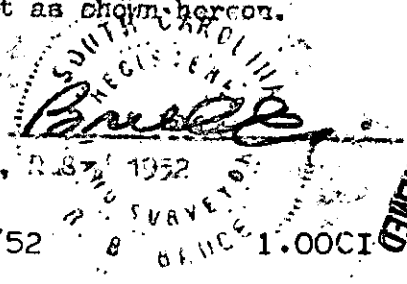 t as shown hereon.
SOUTH CAROLINA
REGISTERED
LAND SURVEYOR
R B BRUCE
1952
/52
1.00CI